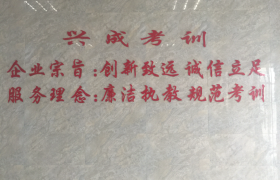 兴成考训
企业宗旨:创新致远 诚信立足
服务理念:廉洁执教 规范考训